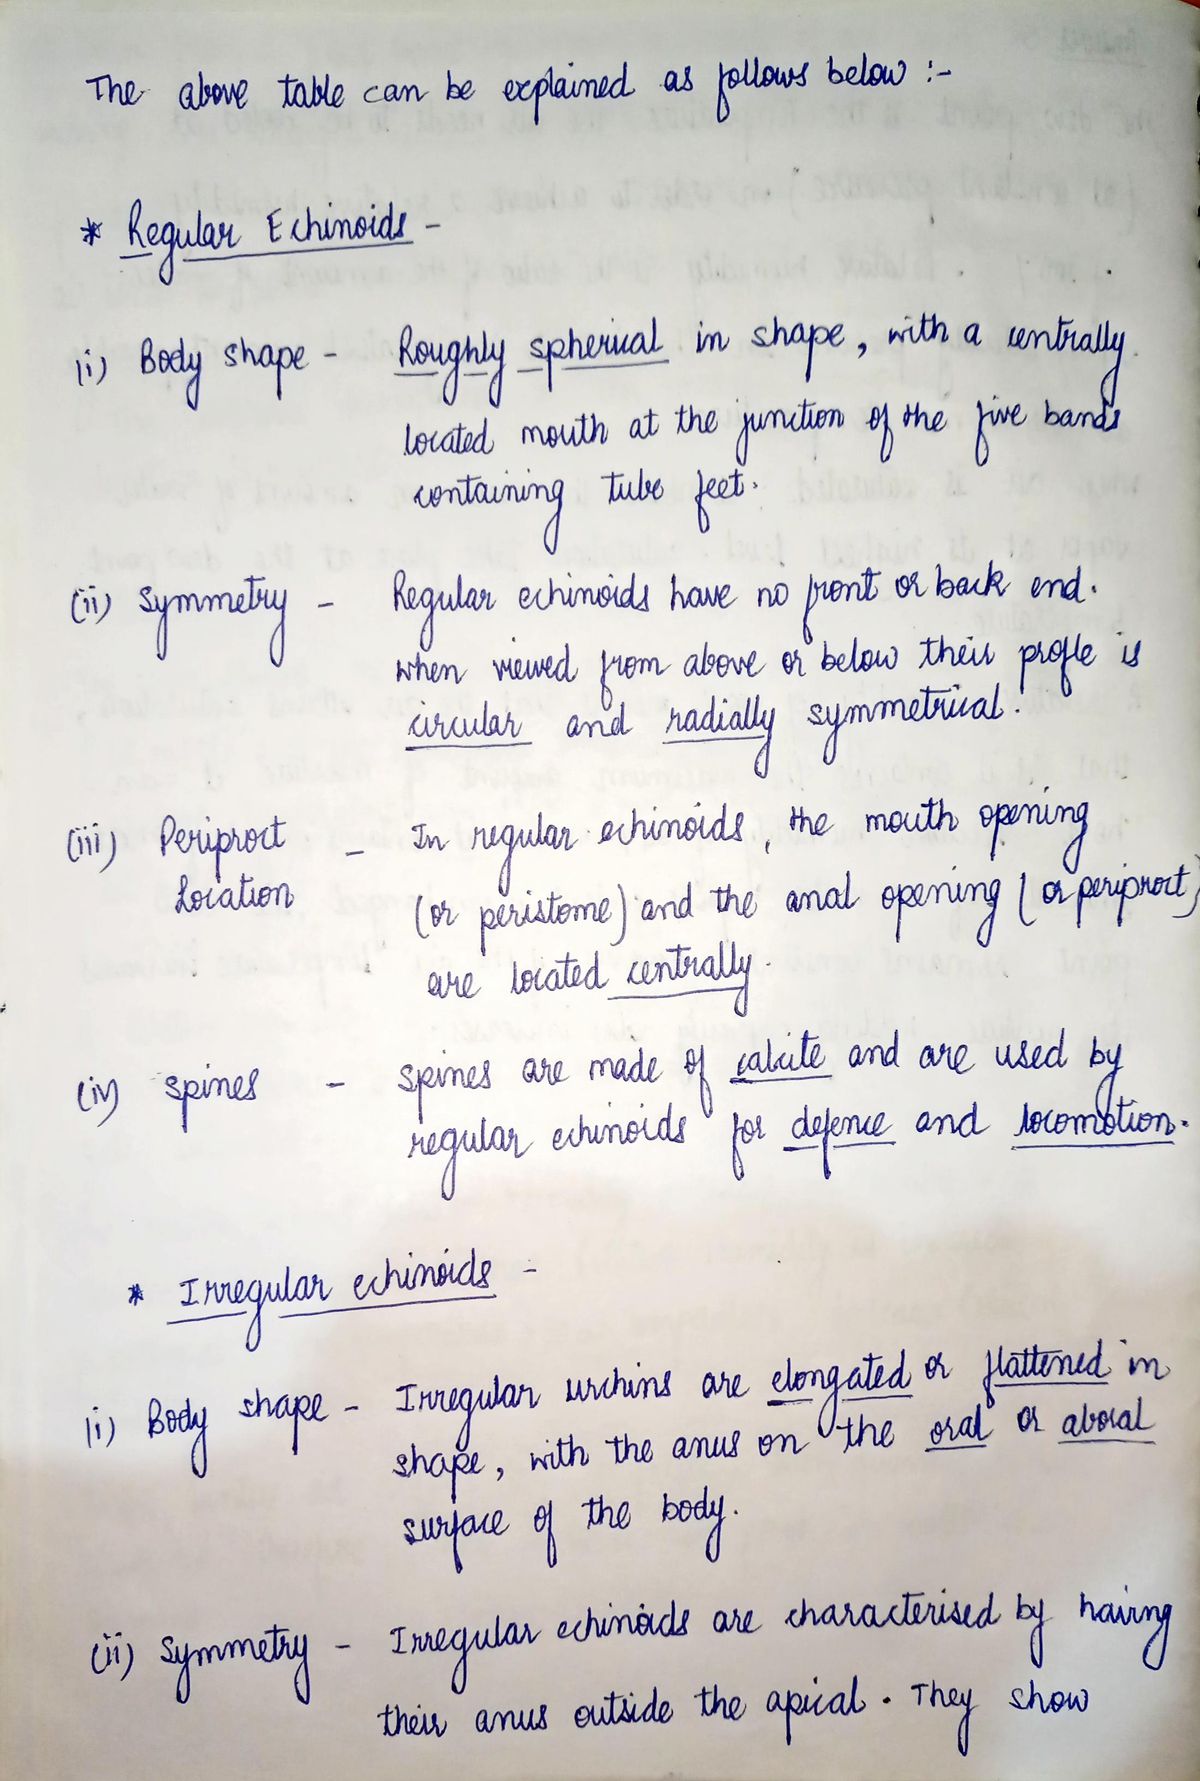 The above table can be explained as follows below :-
* Regular Echinoids -
(i) Body shape - Roughly spherical in shape, with a centrally
located mouth at the junction of the five bands
containing tube feet.
(ii) Symmetry - Regular echinoids have no front or back end.
when viewed from above or below their profle is
circular and radially symmetrical.
(iii) Periproct - In regular echinoids, the mouth opening
Location (or peristome) and the anal opening (or periproct)
are located centrally.
(iv) spines - spines are made of calcite and are used by
regular echinoids for defence and locomotion.
* Irregular echinoids -
(i) Body shape - Irregular urchins are elongated or flattened in
shape, with the anus on the oral or aboral
surface of the body.
(ii) Symmetry - Irregular echinoids are characterised by hairng
their anus outside the apical. They show